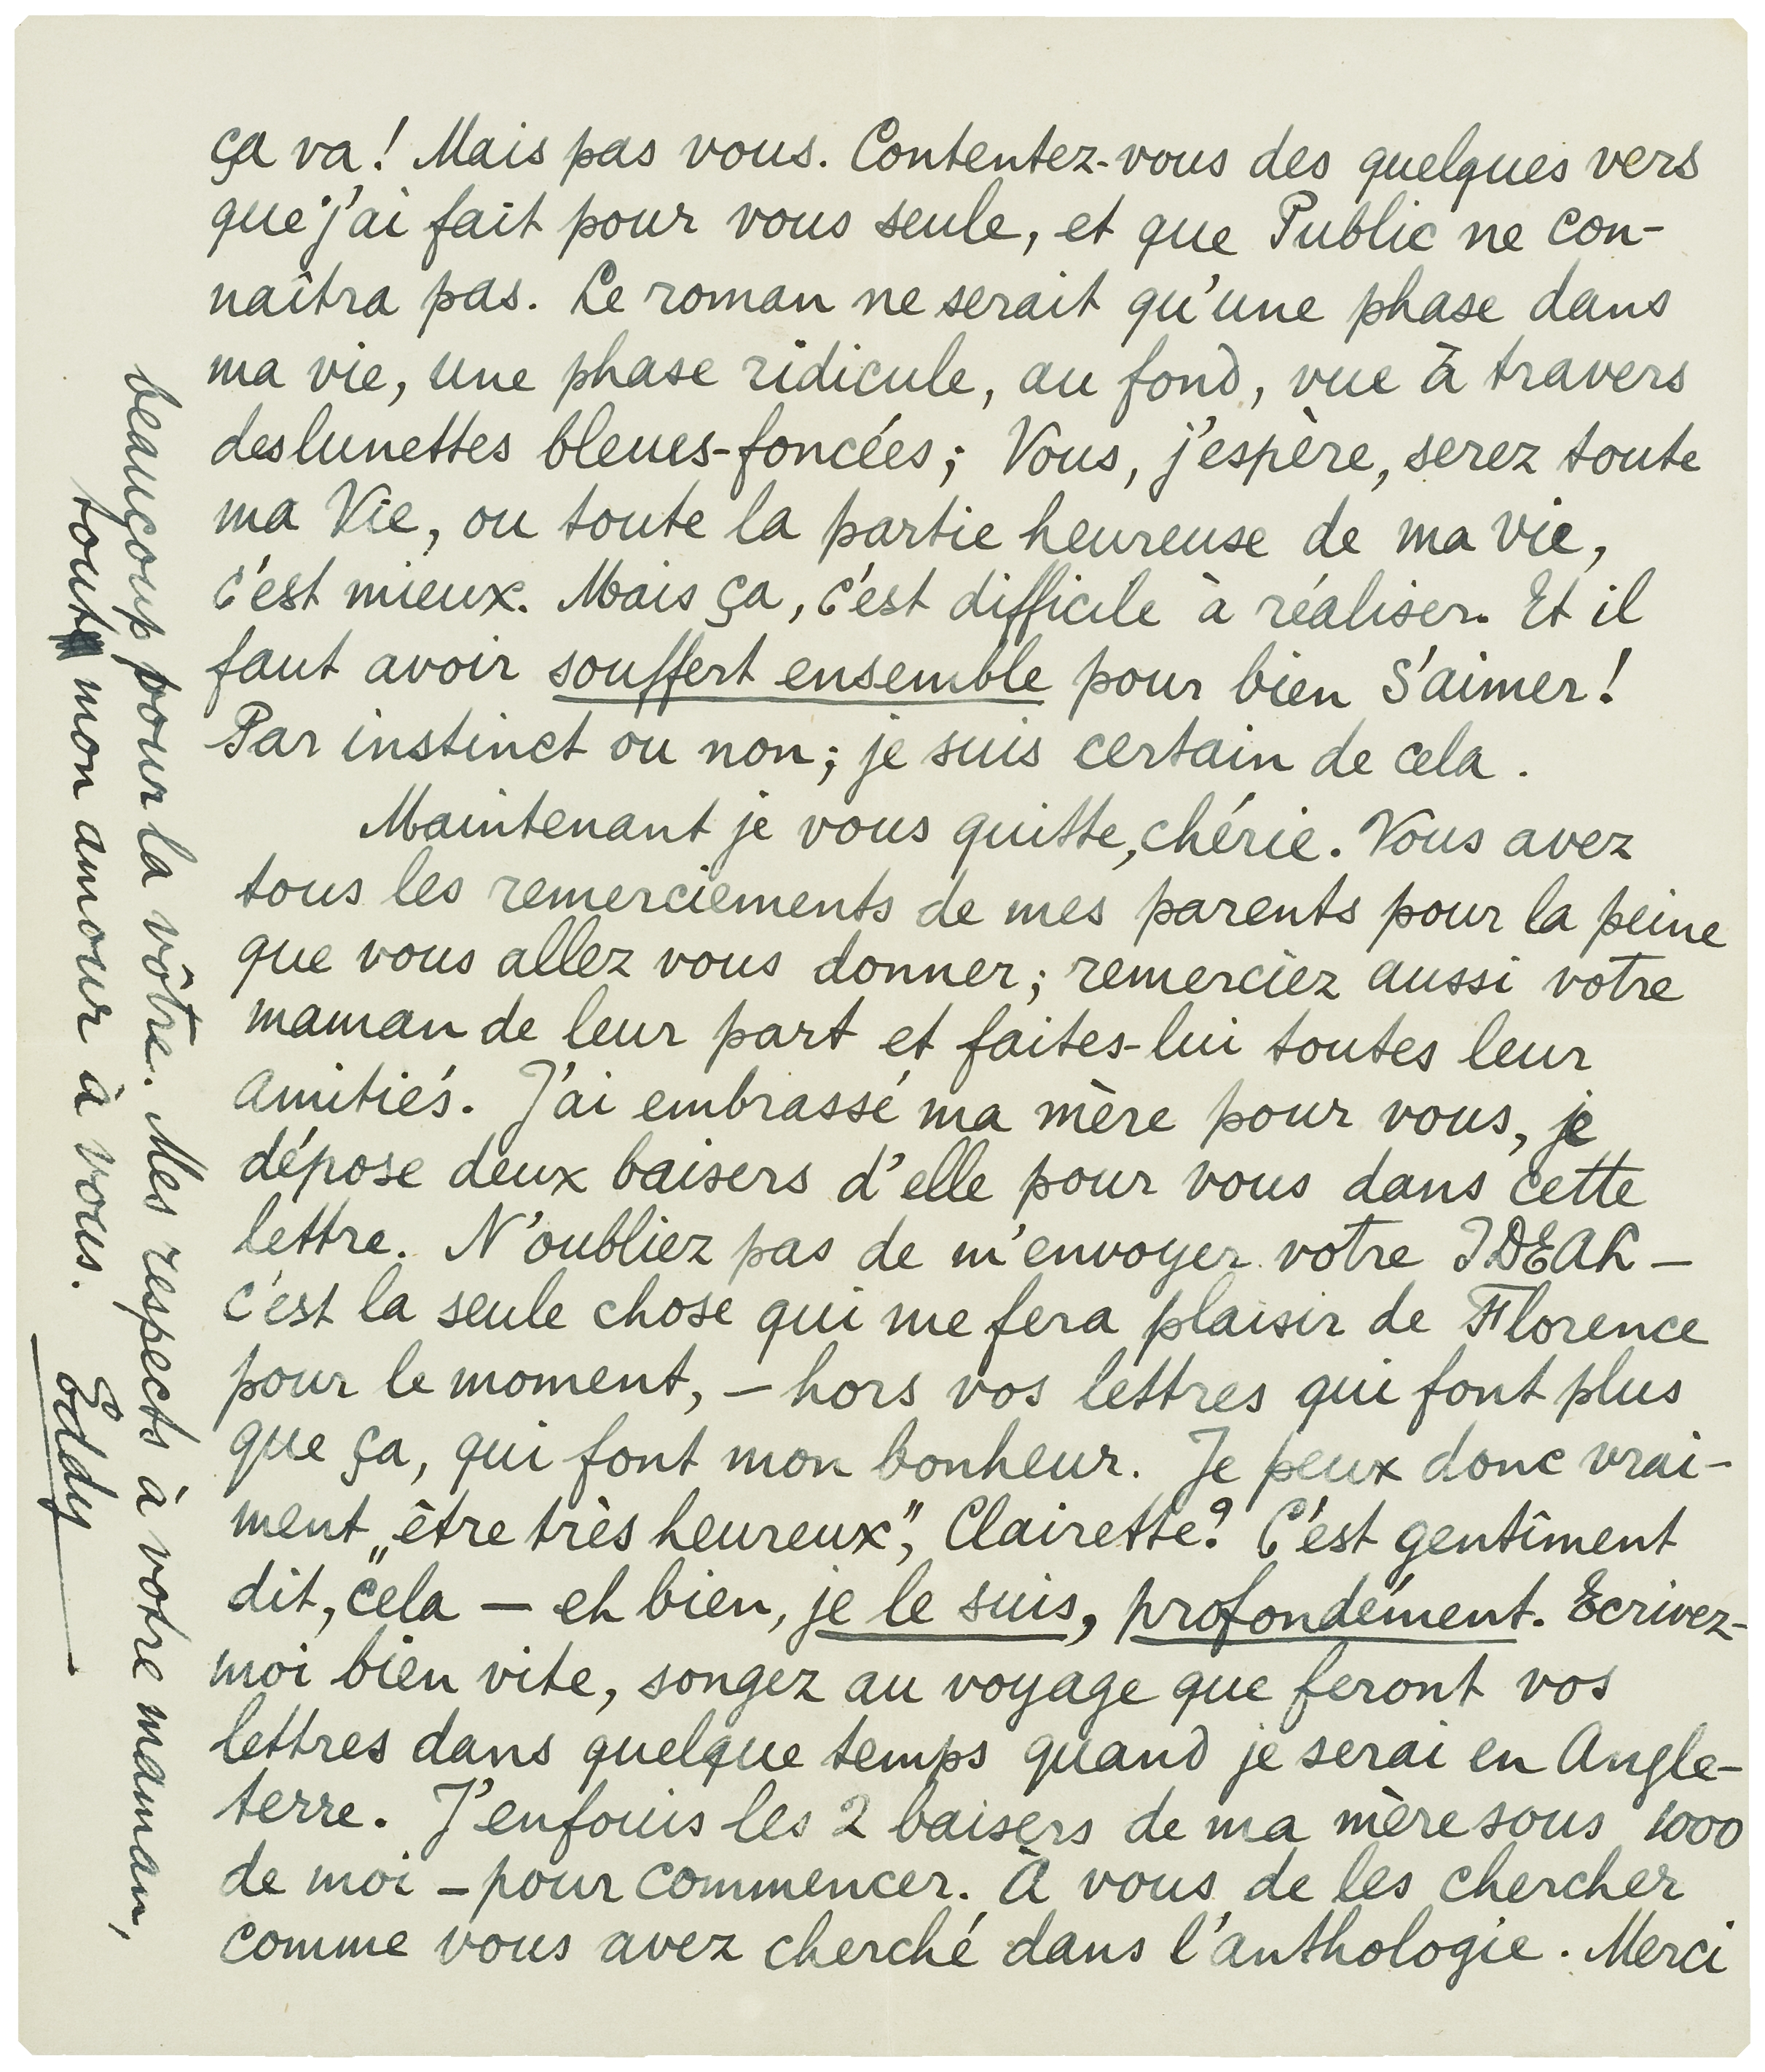 ça va! Mais pas vous. Contentez-vous des quelques vers
que j'ai fait pour vous seule, et que Public ne con-
naîtra pas. Le roman ne serait qu'une phase dans
ma vie, une phase ridicule, au fond, vue à travers
des lunettes bleues-foncées; Vous, j'espère, serez toute
ma Vie, ou toute la partie heureuse de ma vie,
c'est mieux. Mais ça, c'est difficile à réaliser. Et il
faut avoir souffert ensemble pour bien s'aimer!
Par instinct ou non; je suis certain de cela.
Maintenant je vous quitte, chérie. Vous avez
tous les remerciements de mes parents pour la peine
que vous allez vous donner; remerciez aussi votre
maman de leur part et faites-lui toutes leur
amitiés. J'ai embrassé ma mère pour vous, je
dépose deux baisers d'elle pour vous dans cette
lettre. N'oubliez pas de m'envoyer votre IDEAL —
c'est la seule chose qui me fera plaisir de Florence
pour le moment, — hors vos lettres qui font plus
que ça, qui font mon bonheur. Je peux donc vrai-
ment „être très heureux", Clairette? C'est gentîment
dit, cela — eh bien, je le suis, profondément. Ecrivez-
moi bien vite, songez au voyage que feront vos
lettres dans quelque temps quand je serai en Angle-
terre. J'enfouis les 2 baisers de ma mère sous 1000
de moi — pour commencer. À vous de les chercher
comme vous avez cherché dans l'anthologie. Merci
beaucoup pour la vôtre. Mes respects à votre maman,
tout mon amour à vous.
Eddy